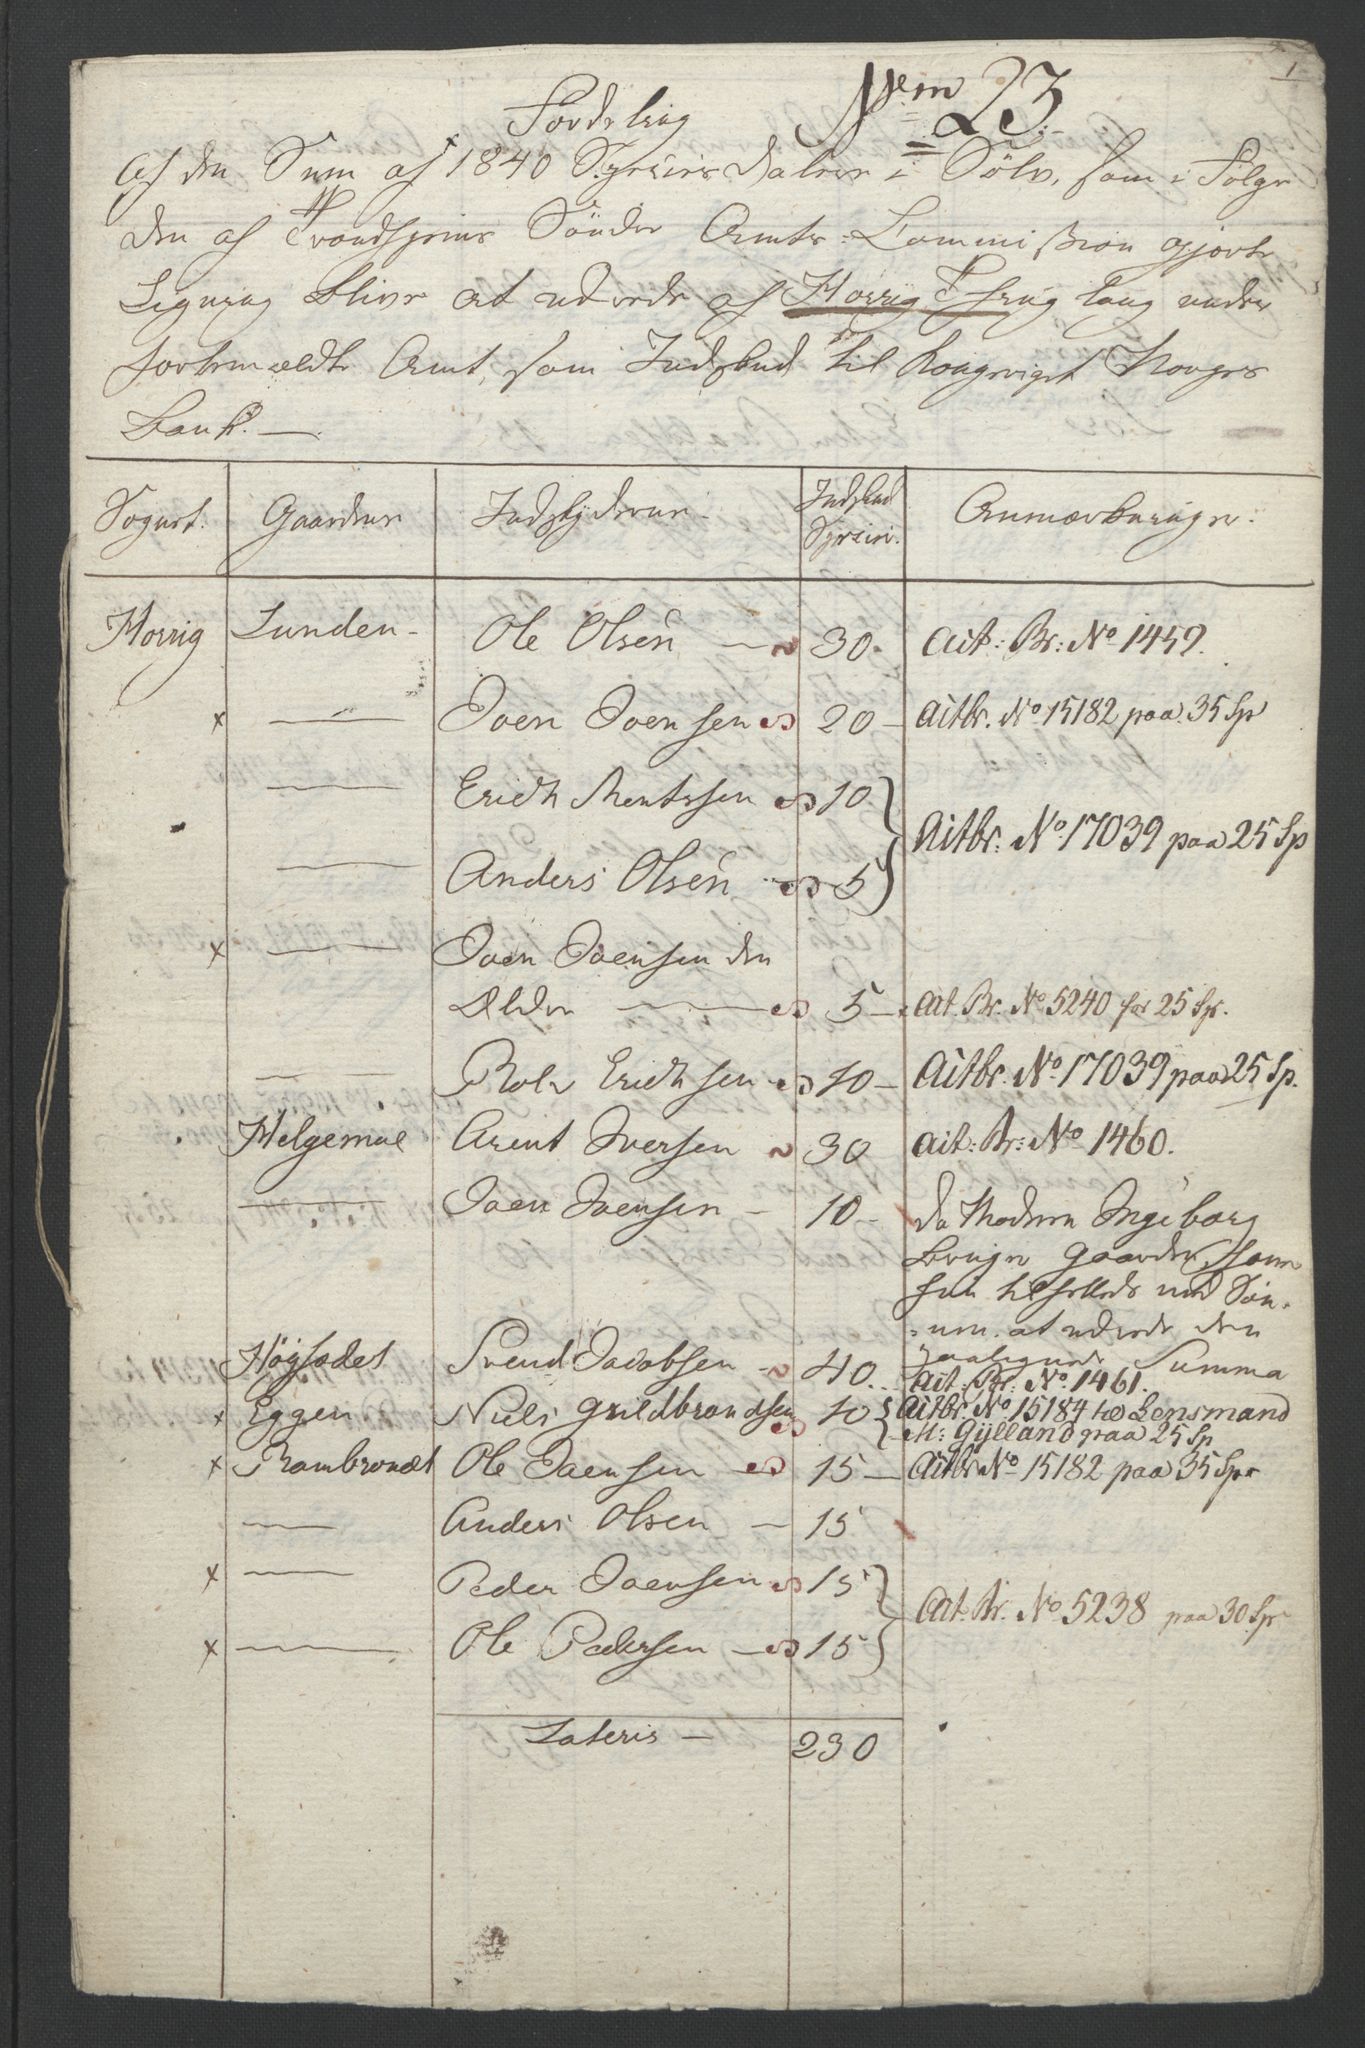 1
Nem 23
Fordeling
af den Sum af 1840 Species Daler i Sölv, som i Følge
den af Trondhjems Sönder Amts Commission gjorte
Ligning bliver at udrede af Horrig Thinglaug under
forbemældte Amt, som Indskud til Kongeriget Norges
Bank. —
Sognet. Gaardene Indskyderne. Indskud Specier. Anmærkninger.
Horrig Lunden - Ole Olsen — 30. Ait: Br: No 1459.
x — Joen Joensen 20 - Aitbr. No 15182 paa 35 Sp
— Erich Bentssen 10
Aitbr. No 17039 paa 25 Sp
— Anders Olsen - 5
x — Joen Joensen den
Ældre — 5 - Act. Br. No 5240 for 25 Sp.
— Rolv Erichsen 10 - Aitbr. No 17039 paa 25 Sp.
Helgemoe Arent Iversen 30 Ait: Br: No 1460.
— Joen Joensen - 10 - da Moderen Ingeborg
bruger Gaarden, kommer
hun tilfælleds med Søn-
nen at udrede den
paalignede Summa
Högsödet Svend Jacobsen - 40. Ait: Br: No 1461.
x Eggen Niels Guldbrandsen 10 Aitbr. No 15184 til Lensmand
M: Gylland paa 25 Sp
x Rambrondt Ole Joensen - 15 - Aitbr No 15182 paa 35 Spr
— Anders Olsen - 15
x — Peder Joensen 15
Act. Br. No 5238 paa 30 Sp
x — Ole Pedersen - 15
Lateris - 230